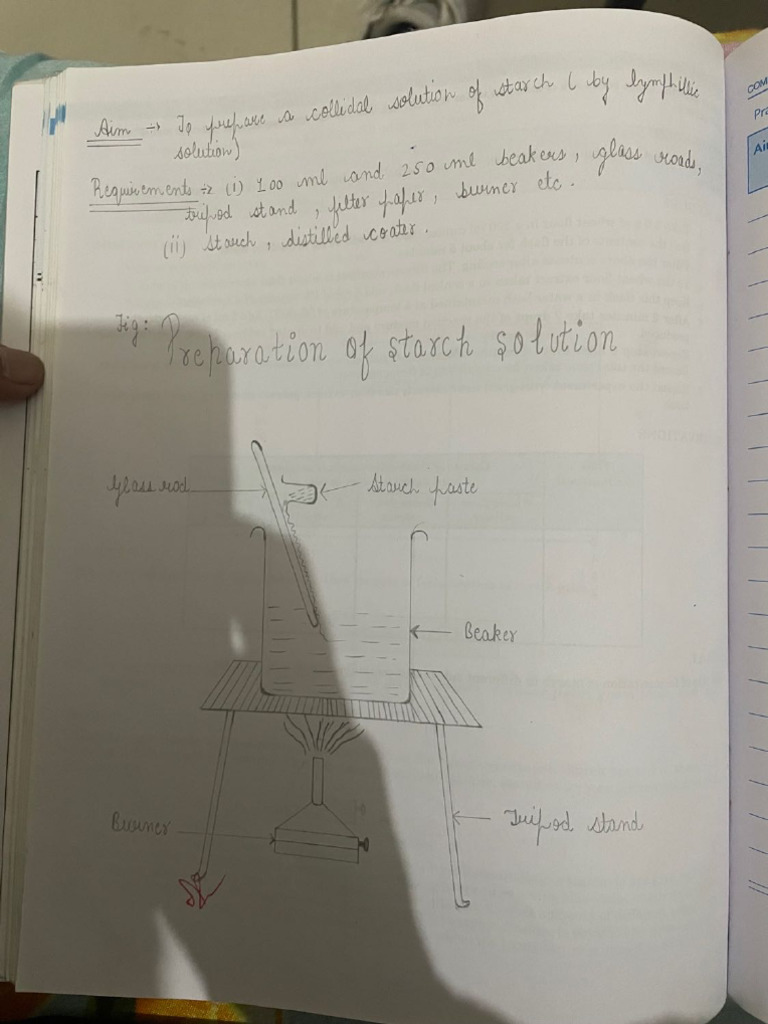 Aim → To prepare a collidal solution of starch ( by lymphillic
solution)
Requirements ÷ (i) 100 ml and 250 ml beakers, glass roads,
tripod stand, filter paper, burner etc.
(ii) Starch, distilled coater.
Fig: Preparation of starch solution
Glass rod
Starch paste
Beaker
Burner
Tripod stand
COM
Pra
Ai